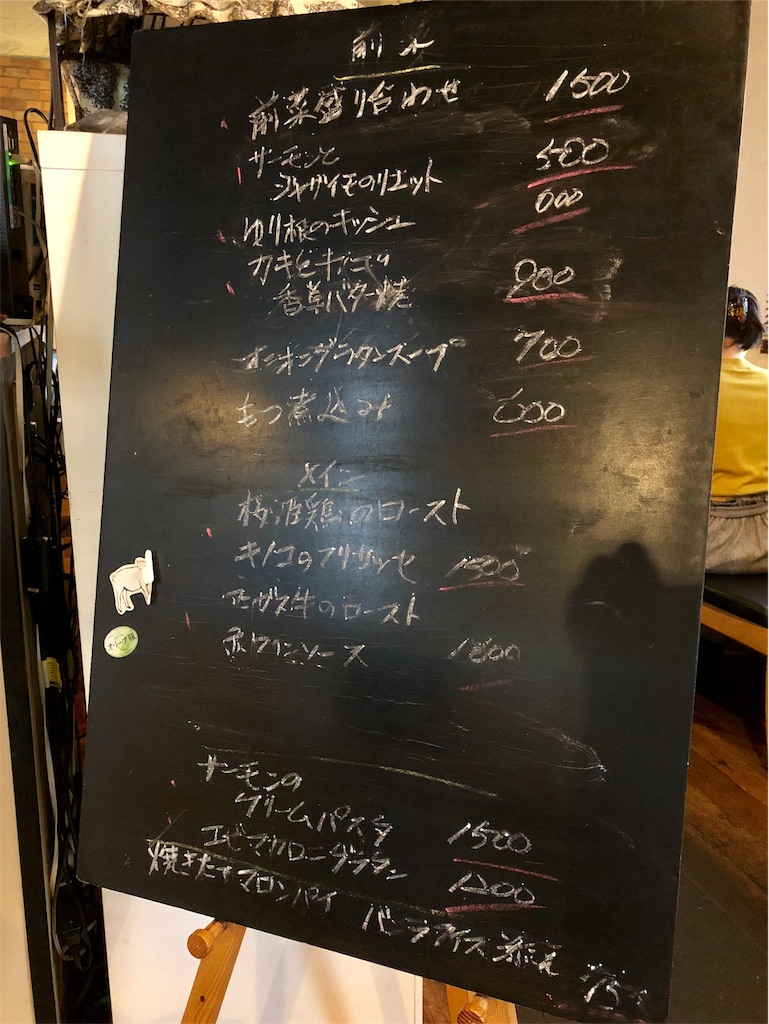 前菜
前菜盛り合わせ 1500
サーモンと
ジャガイモのリエット 500
ゆり根のキッシュ 600
カキとキノコの
香草バター焼 900
オニオングラタンスープ 700
もつ煮込み 600
メイン
鶏のロースト
キノコのフリカッセ 1500
アンガス牛のロースト
赤ワインソース 1800
サーモンの
クリームパスタ 1500
エビマカロニグラタン 1200
焼きたてマロンパイ バニラアイス添え 75
オリーブ豚